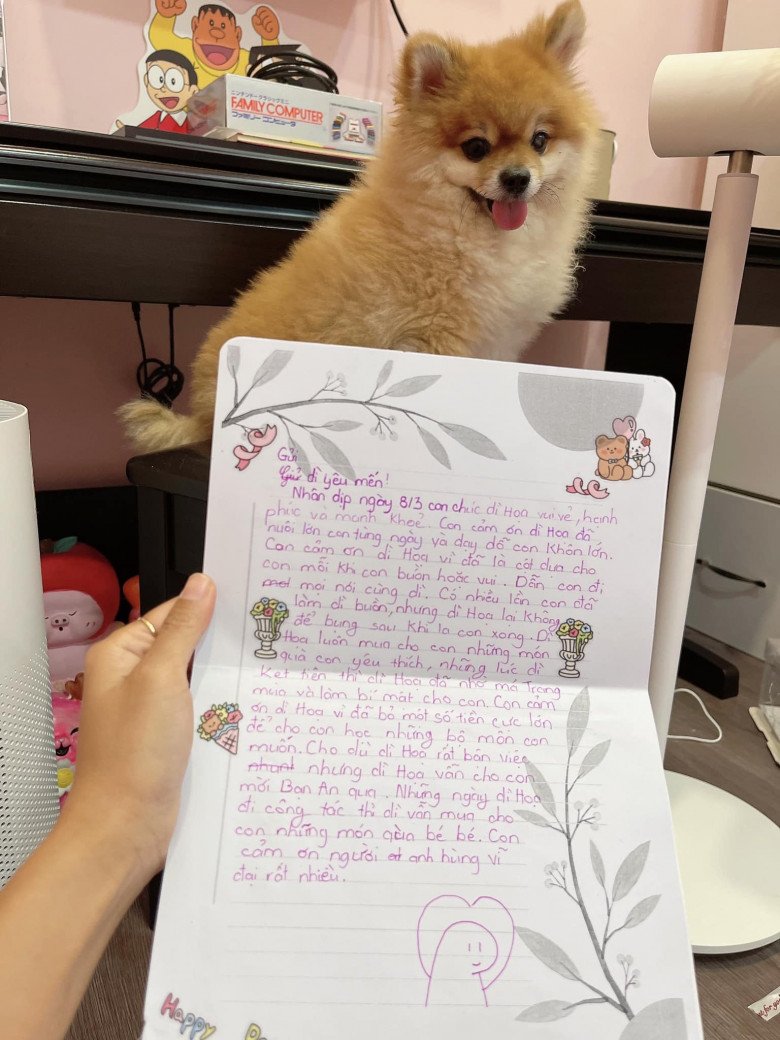 ニンテンドークラシックミニ
FAMILY COMPUTER
ファミリーコンピュータ
Gửi
dì yêu mến!
Nhân dịp ngày 8/3 con chúc dì Hoa vui vẻ, hạnh
phúc và mạnh khoẻ. Con cảm ơn dì Hoa đã
nuôi lớn con từng ngày và dạy dỗ con khôn lớn.
Con cảm ơn dì Hoa vì đã là cột dựa cho
con mỗi khi con buồn hoặc vui. Dẫn con đi
mọi nơi cùng dì. Có nhiều lần con đã
làm dì buồn, nhưng dì Hoa lại không
để bụng sau khi la con xong. Dì
Hoa luôn mua cho con những món
quà con yêu thích, những lúc dì
kẹt tiền thì dì Hoa đã nhờ má Trang
mua và làm bí mật cho con. Con cảm
ơn dì Hoa vì đã bỏ một số tiền cực lớn
để cho con học những bộ môn con
muốn. Cho dù dì Hoa rất bận việc
nhưng dì Hoa vẫn cho con
mời Ban An qua. Những ngày dì Hoa
đi công tác thì dì vẫn mua cho
con những món qùa bé bé. Con
cảm ơn người anh hùng vĩ
đại rất nhiều.
Happy